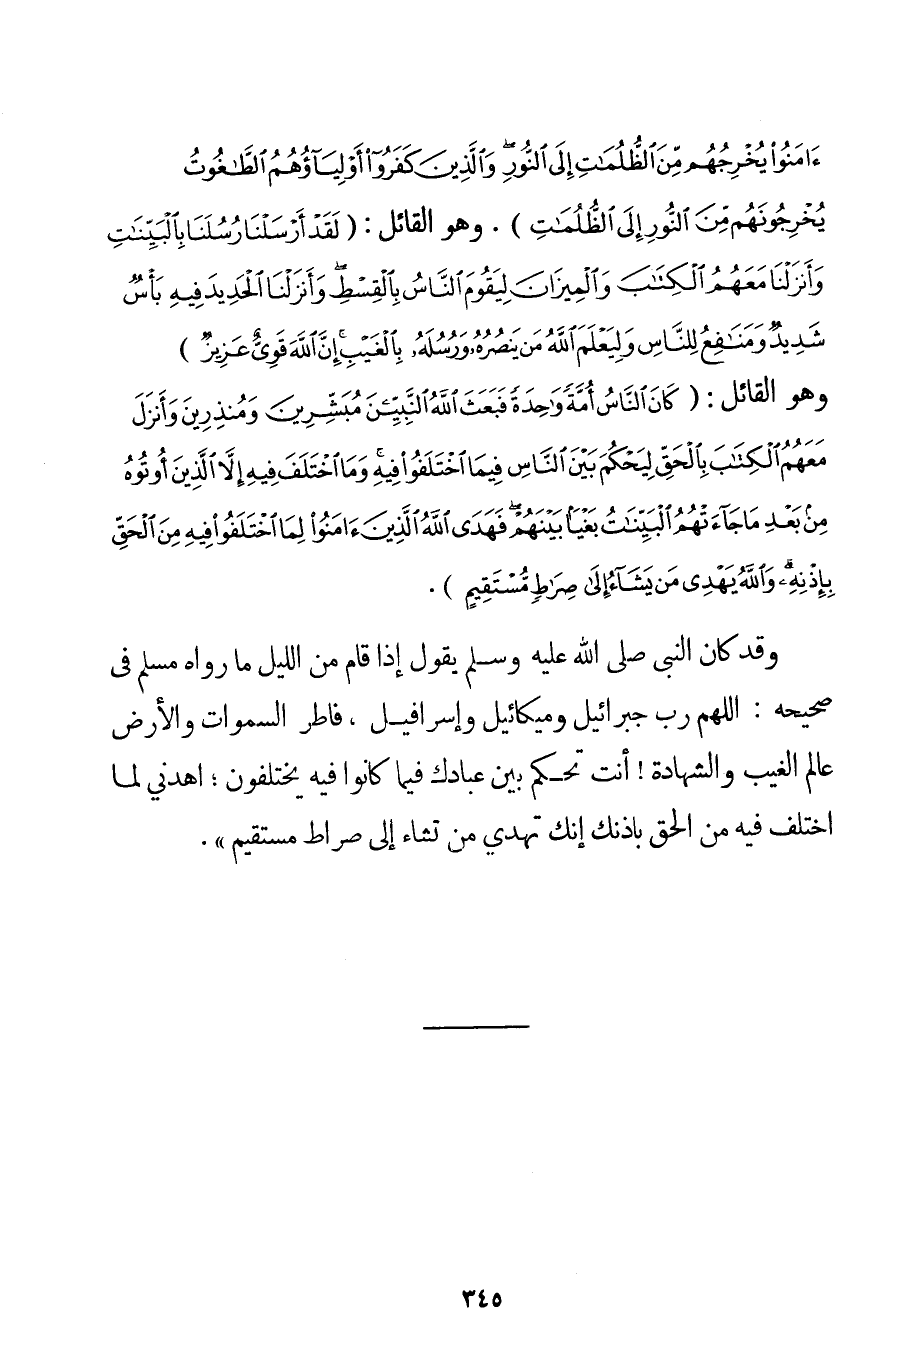 ءَامَنُوا۟ يُخْرِجُهُم مِّنَ ٱلظُّلُمَـٰتِ إِلَى ٱلنُّورِ ۖ وَٱلَّذِينَ كَفَرُوٓا۟ أَوْلِيَآؤُهُمُ ٱلطَّـٰغُوتُ
يُخْرِجُونَهُم مِّنَ ٱلنُّورِ إِلَى ٱلظُّلُمَـٰتِ ) . وهو القائل : ( لَقَدْ أَرْسَلْنَا رُسُلَنَا بِٱلْبَيِّنَـٰتِ
وَأَنزَلْنَا مَعَهُمُ ٱلْكِتَـٰبَ وَٱلْمِيزَانَ لِيَقُومَ ٱلنَّاسُ بِٱلْقِسْطِ ۖ وَأَنزَلْنَا ٱلْحَدِيدَ فِيهِ بَأْسٌ
شَدِيدٌ وَمَنَـٰفِعُ لِلنَّاسِ وَلِيَعْلَمَ ٱللَّهُ مَن يَنصُرُهُۥ وَرُسُلَهُۥ بِٱلْغَيْبِ ۚ إِنَّ ٱللَّهَ قَوِىٌّ عَزِيزٌ )
وهو القائل : ( كَانَ ٱلنَّاسُ أُمَّةً وَٰحِدَةً فَبَعَثَ ٱللَّهُ ٱلنَّبِيِّـۧنَ مُبَشِّرِينَ وَمُنذِرِينَ وَأَنزَلَ
مَعَهُمُ ٱلْكِتَـٰبَ بِٱلْحَقِّ لِيَحْكُمَ بَيْنَ ٱلنَّاسِ فِيمَا ٱخْتَلَفُوا۟ فِيهِ ۚ وَمَا ٱخْتَلَفَ فِيهِ إِلَّا ٱلَّذِينَ أُوتُوهُ
مِنۢ بَعْدِ مَا جَآءَتْهُمُ ٱلْبَيِّنَـٰتُ بَغْيًۢا بَيْنَهُمْ ۖ فَهَدَى ٱللَّهُ ٱلَّذِينَ ءَامَنُوا۟ لِمَا ٱخْتَلَفُوا۟ فِيهِ مِنَ ٱلْحَقِّ
بِإِذْنِهِۦ ۗ وَٱللَّهُ يَهْدِى مَن يَشَآءُ إِلَىٰ صِرَٰطٍ مُّسْتَقِيمٍ ) .
وقد كان النبى صلى الله عليه وسلم يقول إذا قام من الليل ما رواه مسلم فى
صحيحه : اللهم رب جبرائيل وميكائيل وإسرافيل ، فاطر السموات والأرض
عالم الغيب والشهادة ! أنت تحكم بين عبادك فيما كانوا فيه يختلفون ؛ اهدني لما
اختلف فيه من الحق باذنك إنك تهدي من تشاء إلى صراط مستقيم » .
٣٤٥